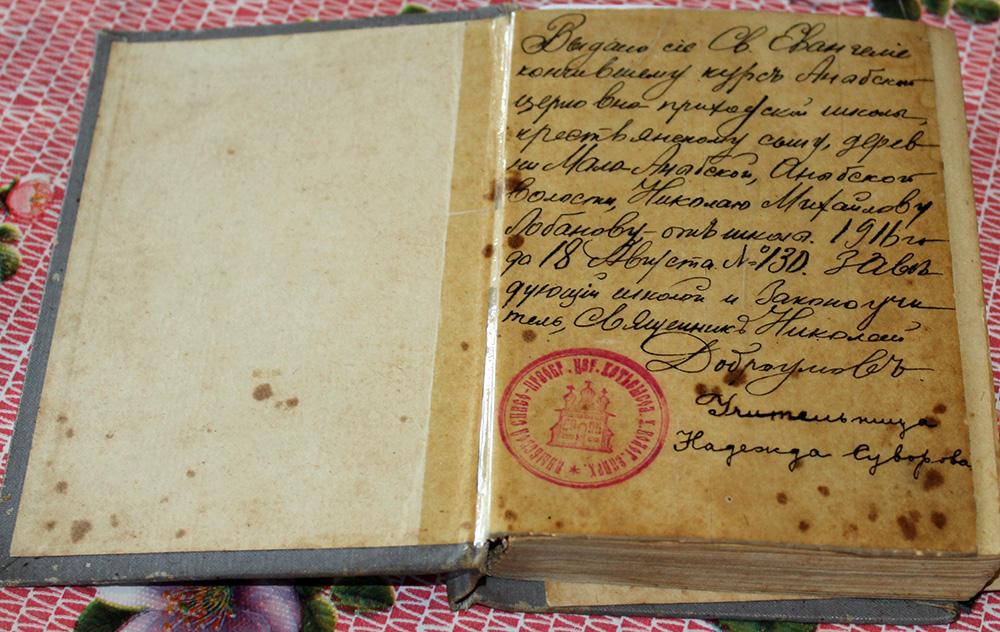 Выдано сіе Св. Евангеліе
кончившему курсъ Анабской
церковна приходской школы,
крестьянскому сыну, дерев-
ни Мало Анабской, Анабской
волости, Николаю Михайлову
Лобанову - отъ школы. 1916 го
да 18 Августа. № 130. Завѣ
дующій школой и Законоучи
тель, Священникъ Николай
Доброумовъ
Учительница
Надежда Суворова
СПАСО-ПРЕОБР.